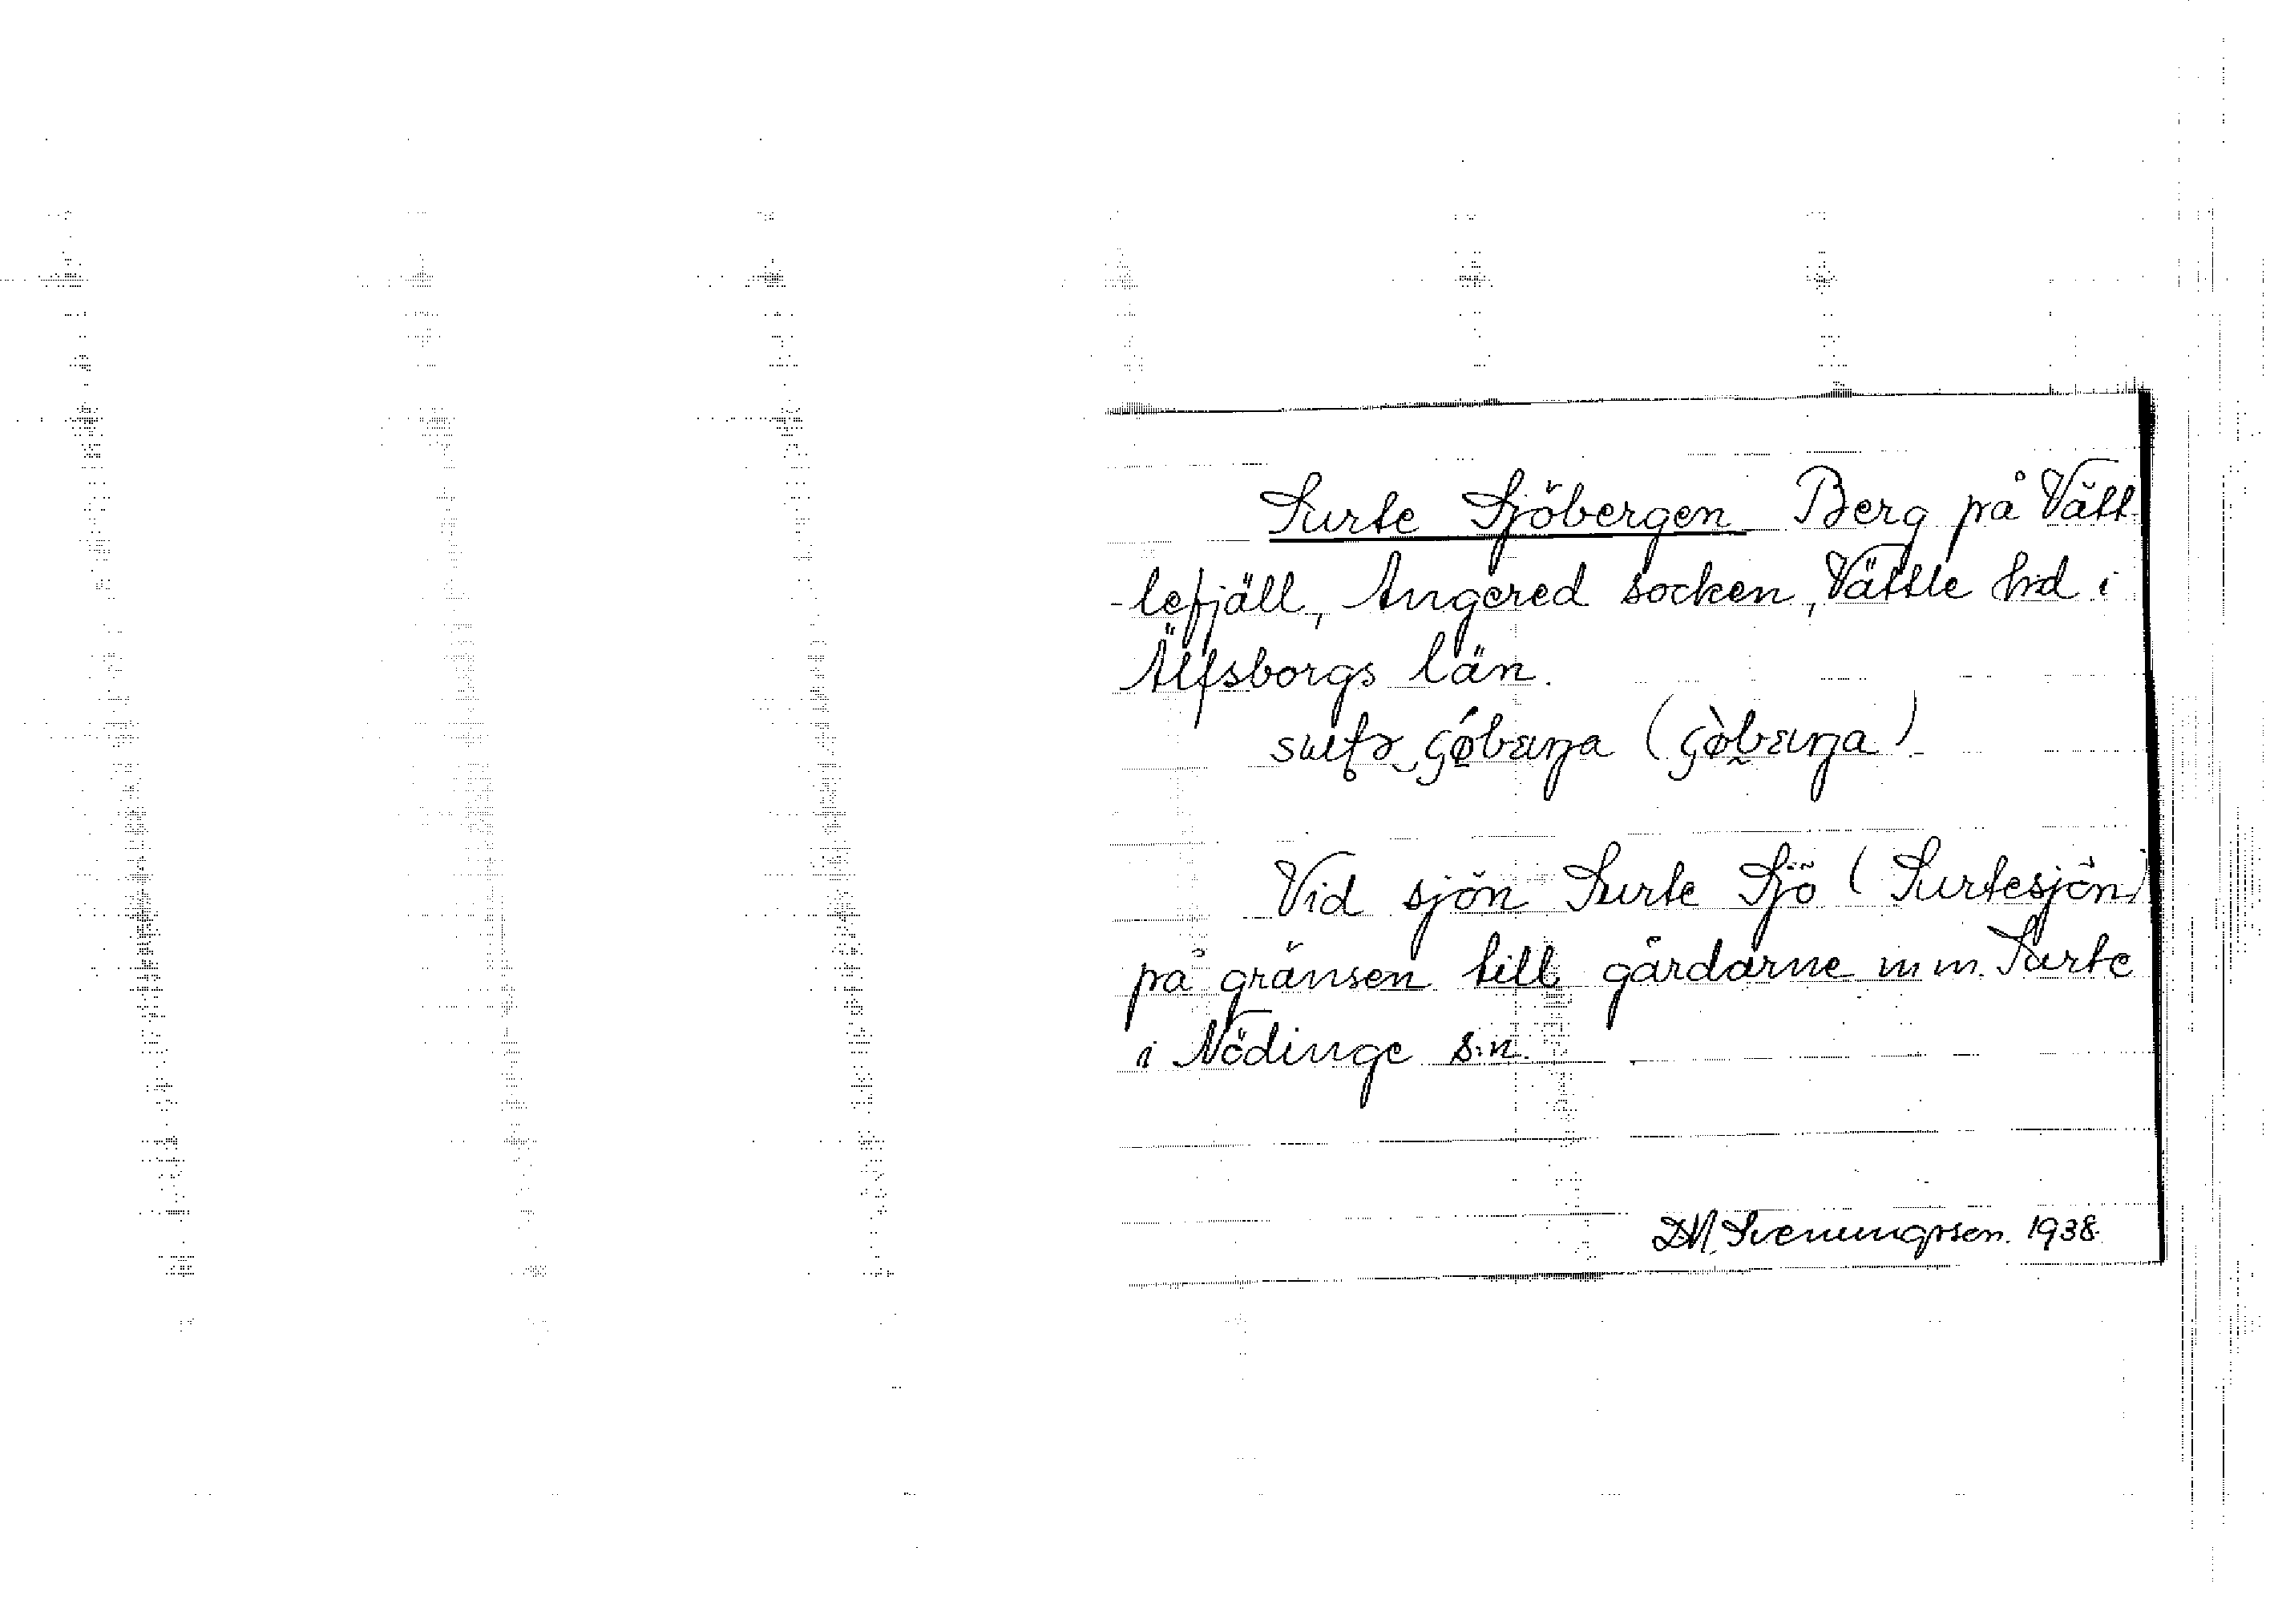 Surte Sjöbergen Berg på Vätt-
-lefjäll, Angered socken, Vättle hd i
Älfsborgs län.
Vid sjön Surte Sjö (Surtesjön)
på gränsen till gårdarne m m. Surte
i Nödinge s:n.
1938.